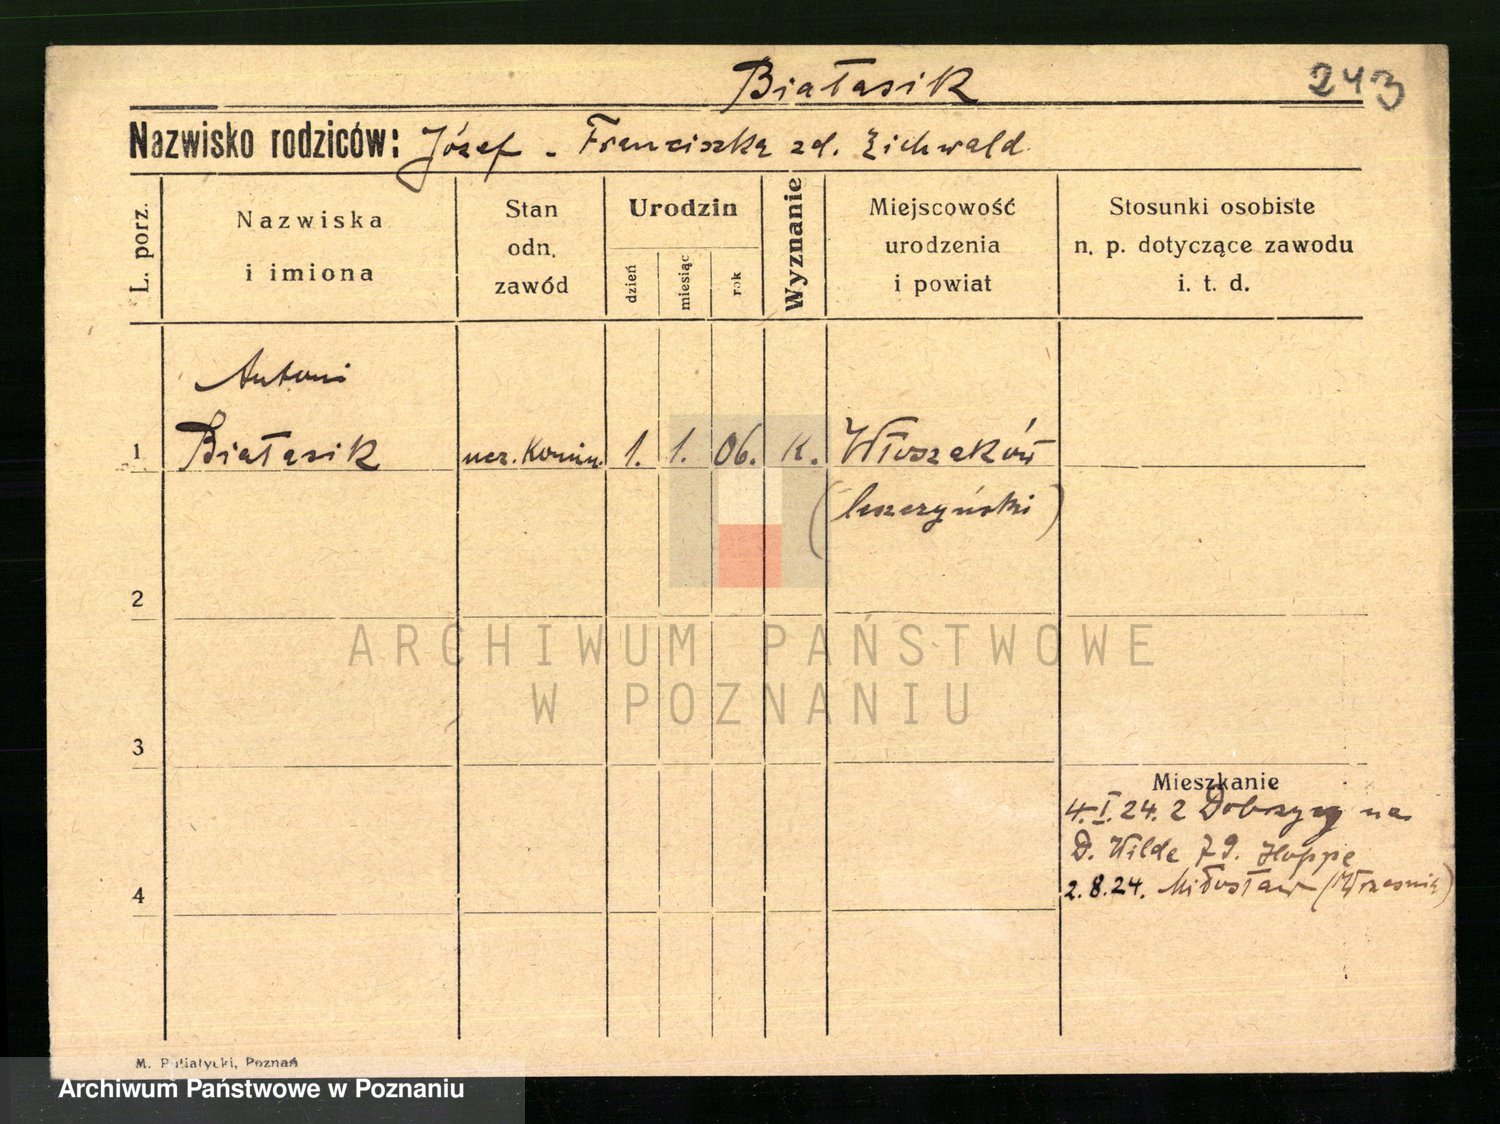 Białasik
243
Nazwisko rodziców: Józef - Franciszka zd. Eichwald
L. porz.
Nazwiska
i imiona
Stan
odn.
zawód
Urodzin
dzień
miesiąc
rok
Wyznanie
Miejscowość
urodzenia
i powiat
Stosunki osobiste
n. p. dotyczące zawodu
i. t. d.
Antoni
1 Białasik ucz. Komin. 1. 1. 06. K. Włoszaków
(leszczyński)
2
ARCHIWUM PAŃSTWOWE
W POZNANIU
3
Mieszkanie
4.I.24. z Dobrzycy na
D. Wilda 79. Hoppe
2.8.24. Miłosław (Września)
4
M. Putiatycki, Poznań
Archiwum Państwowe w Poznaniu